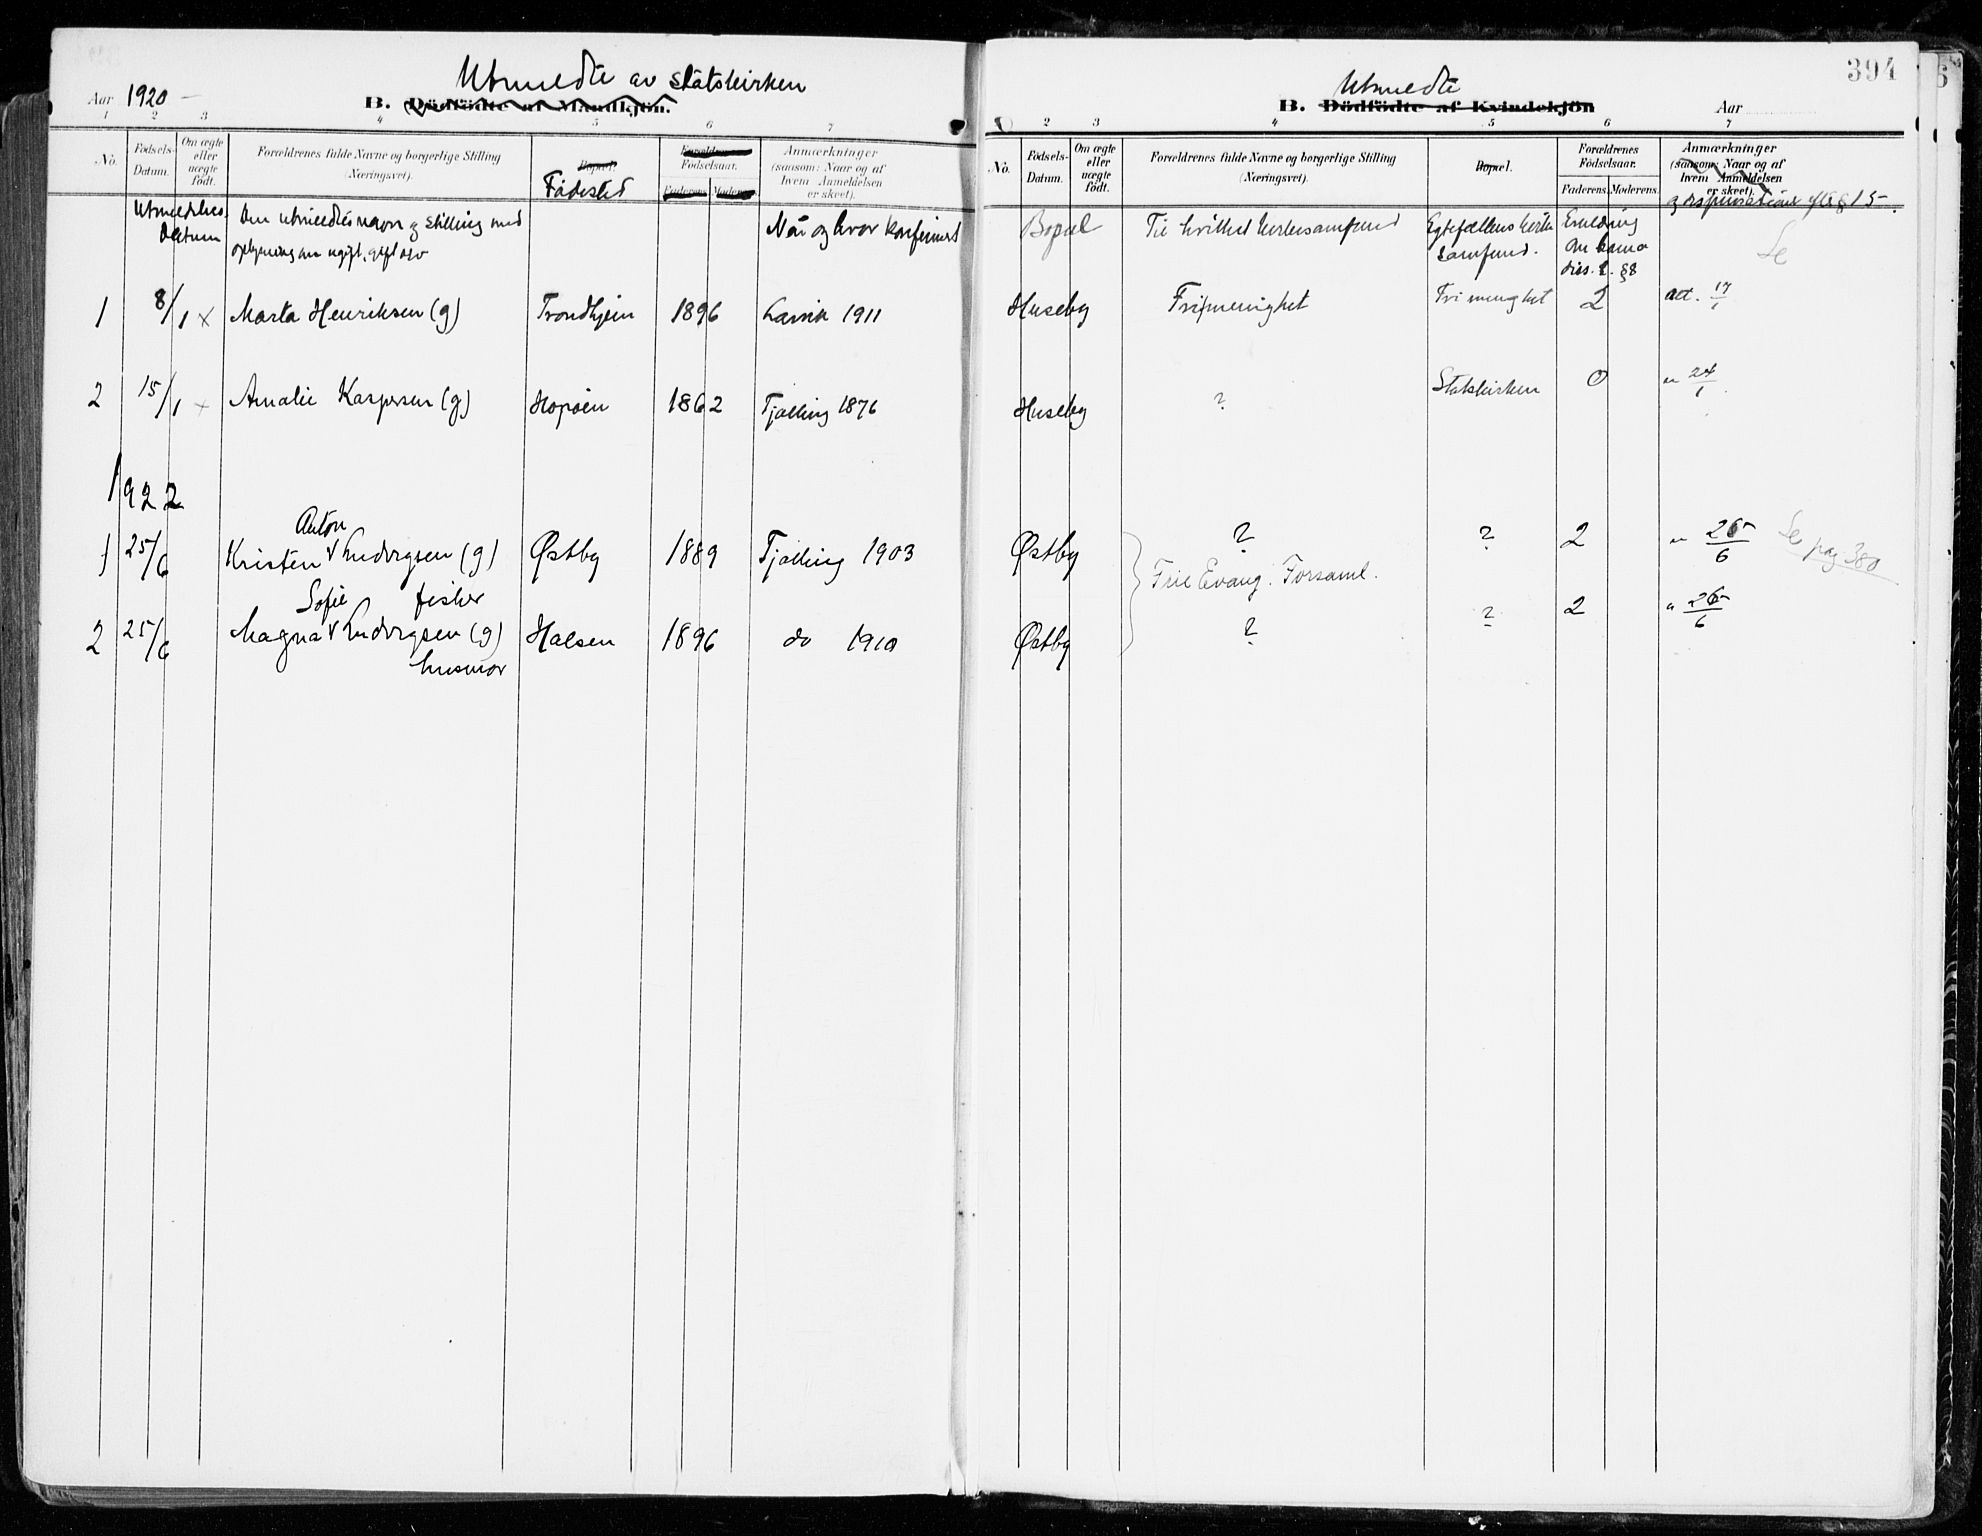 Utmeldte av Statskirken
Aar 1920 –
B. Dödfödte af Mandkjön.
1 2 3 4 5 6 7
No. Fødsels-Datum. Om ægte eller uægte født. Forældrenes fulde Navne og borgerlige Stilling (Næringsvei). Bopæl. Fødested Forældrenes Fødselsaar. Faderens Moderens Anmærkninger (saasom: Naar og af hvem Anmeldelsen er skeet).
Utmeldelses Datum Den utmeldtes navn og stilling med oplysning om ugift, gift osv Når og hvor konfirmert
1 8/1 x Marta Henriksen (g) Trondhjem 1896 Larvik 1911
2 15/1 x Amalie Kaspersen (g) Hopøen 1862 Tjølling 1876
1922
Anton
1 25/6 Kristen Ludvigsen (g) Østby 1889 Tjølling 1903
Sofie fisker
2 25/6 Magna Ludvigsen (g) Halsen 1896 do 1910
husmor
394
Utmeldte
B. Dödfödte af Kvindekjön Aar
2 3 4 5 6 7
No. Fødsels-Datum. Om ægte eller uægte født. Forældrenes fulde Navne og borgerlige Stilling (Næringsvei). Bopæl. Forældrenes Fødselsaar. Faderens. Moderens. Anmærkninger (saasom: Naar og af hvem Anmeldelsen er skeet).
og dispensationer efter § 15
Bopæl Til hvilket kirkesamfund Egtefællens kirke samfund. Erklæring om barna dis. l. §8 Se
Huseby Frimenighet Frimenighet 2 att. 17/1
Huseby ? Statskirken 0 " 24/1
Østby ? ? 2 " 26/6 Se pag. 380
Frie Evang. Forsaml.
Østby ? ? 2 " 26/6